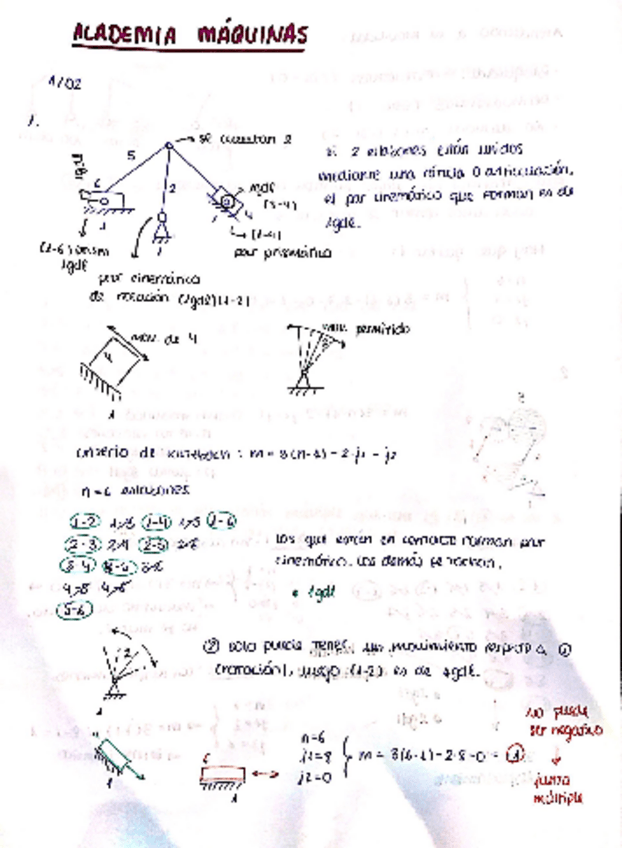 ACADEMIA MÁQUINAS
1/02
1.
se cuentan 2
5
2
6
1
1
4
1
si 2 eslabones están unidos
mediante una rótula o articulación,
el par cinemático que forman es de
1gdl.
1gdl
(3-4)
(1-4)
par prismático
(1-6) prism
1gdl
par cinemático
de rotación (1gdl) (1-2)
mov. de 4
4
1
mov. permitido
criterio de Kutzbach: m = 3(n-1) - 2·j1 - j2
n=6 eslabones
1-2 1,3 1-4 1,5 1-6
2-3 2,4 2-5 2,6
3-4 3-5 3,6
4,5 4,6
5-6
los que están en contacto forman par
cinemático. Los demás se tachan.
1gdl
2
1
② solo puede tener un movimiento respecto a ①
(rotación), luego (1-2) es de 1gdl.
1
6
1
n=6
j1=8
j2=0
m = 3(6-1) - 2·8 - 0 = -1
no puede
ser negativo
junta
múltiple